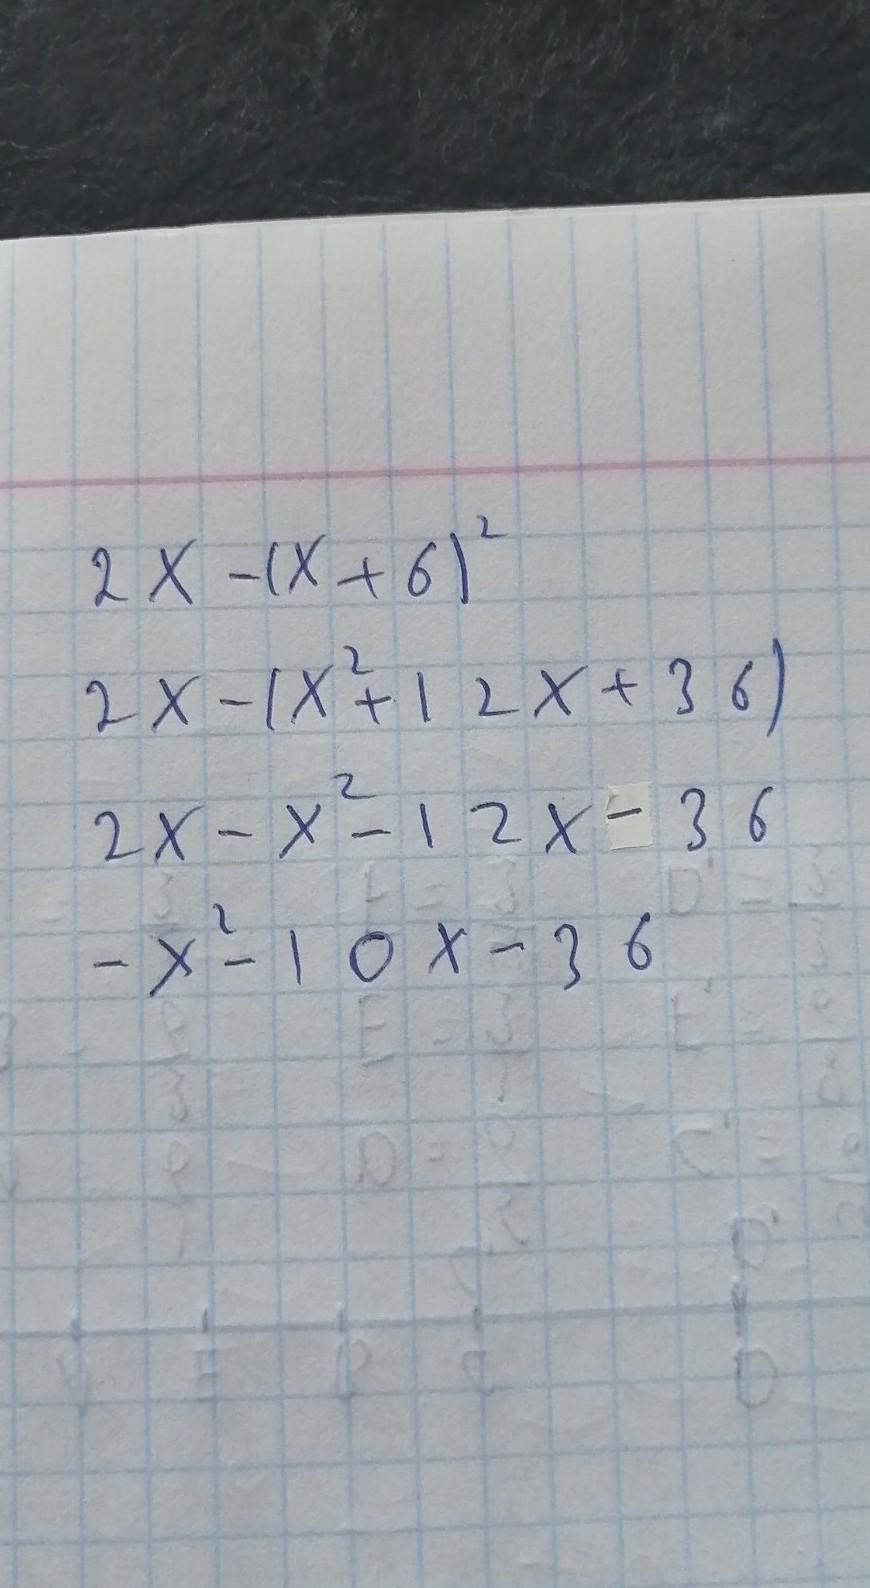 2x-(x+6)²
2x-(x²+12x+36)
2x-x²-12x-36
-x²-10x-36